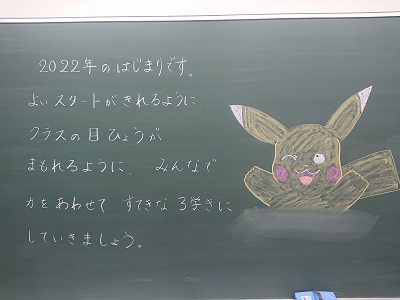 2022年のはじまりです。
よいスタートがきれるように
クラスの目ひょうが
まもれるように、みんなで
力をあわせて すてきな3学きに
していきましょう。